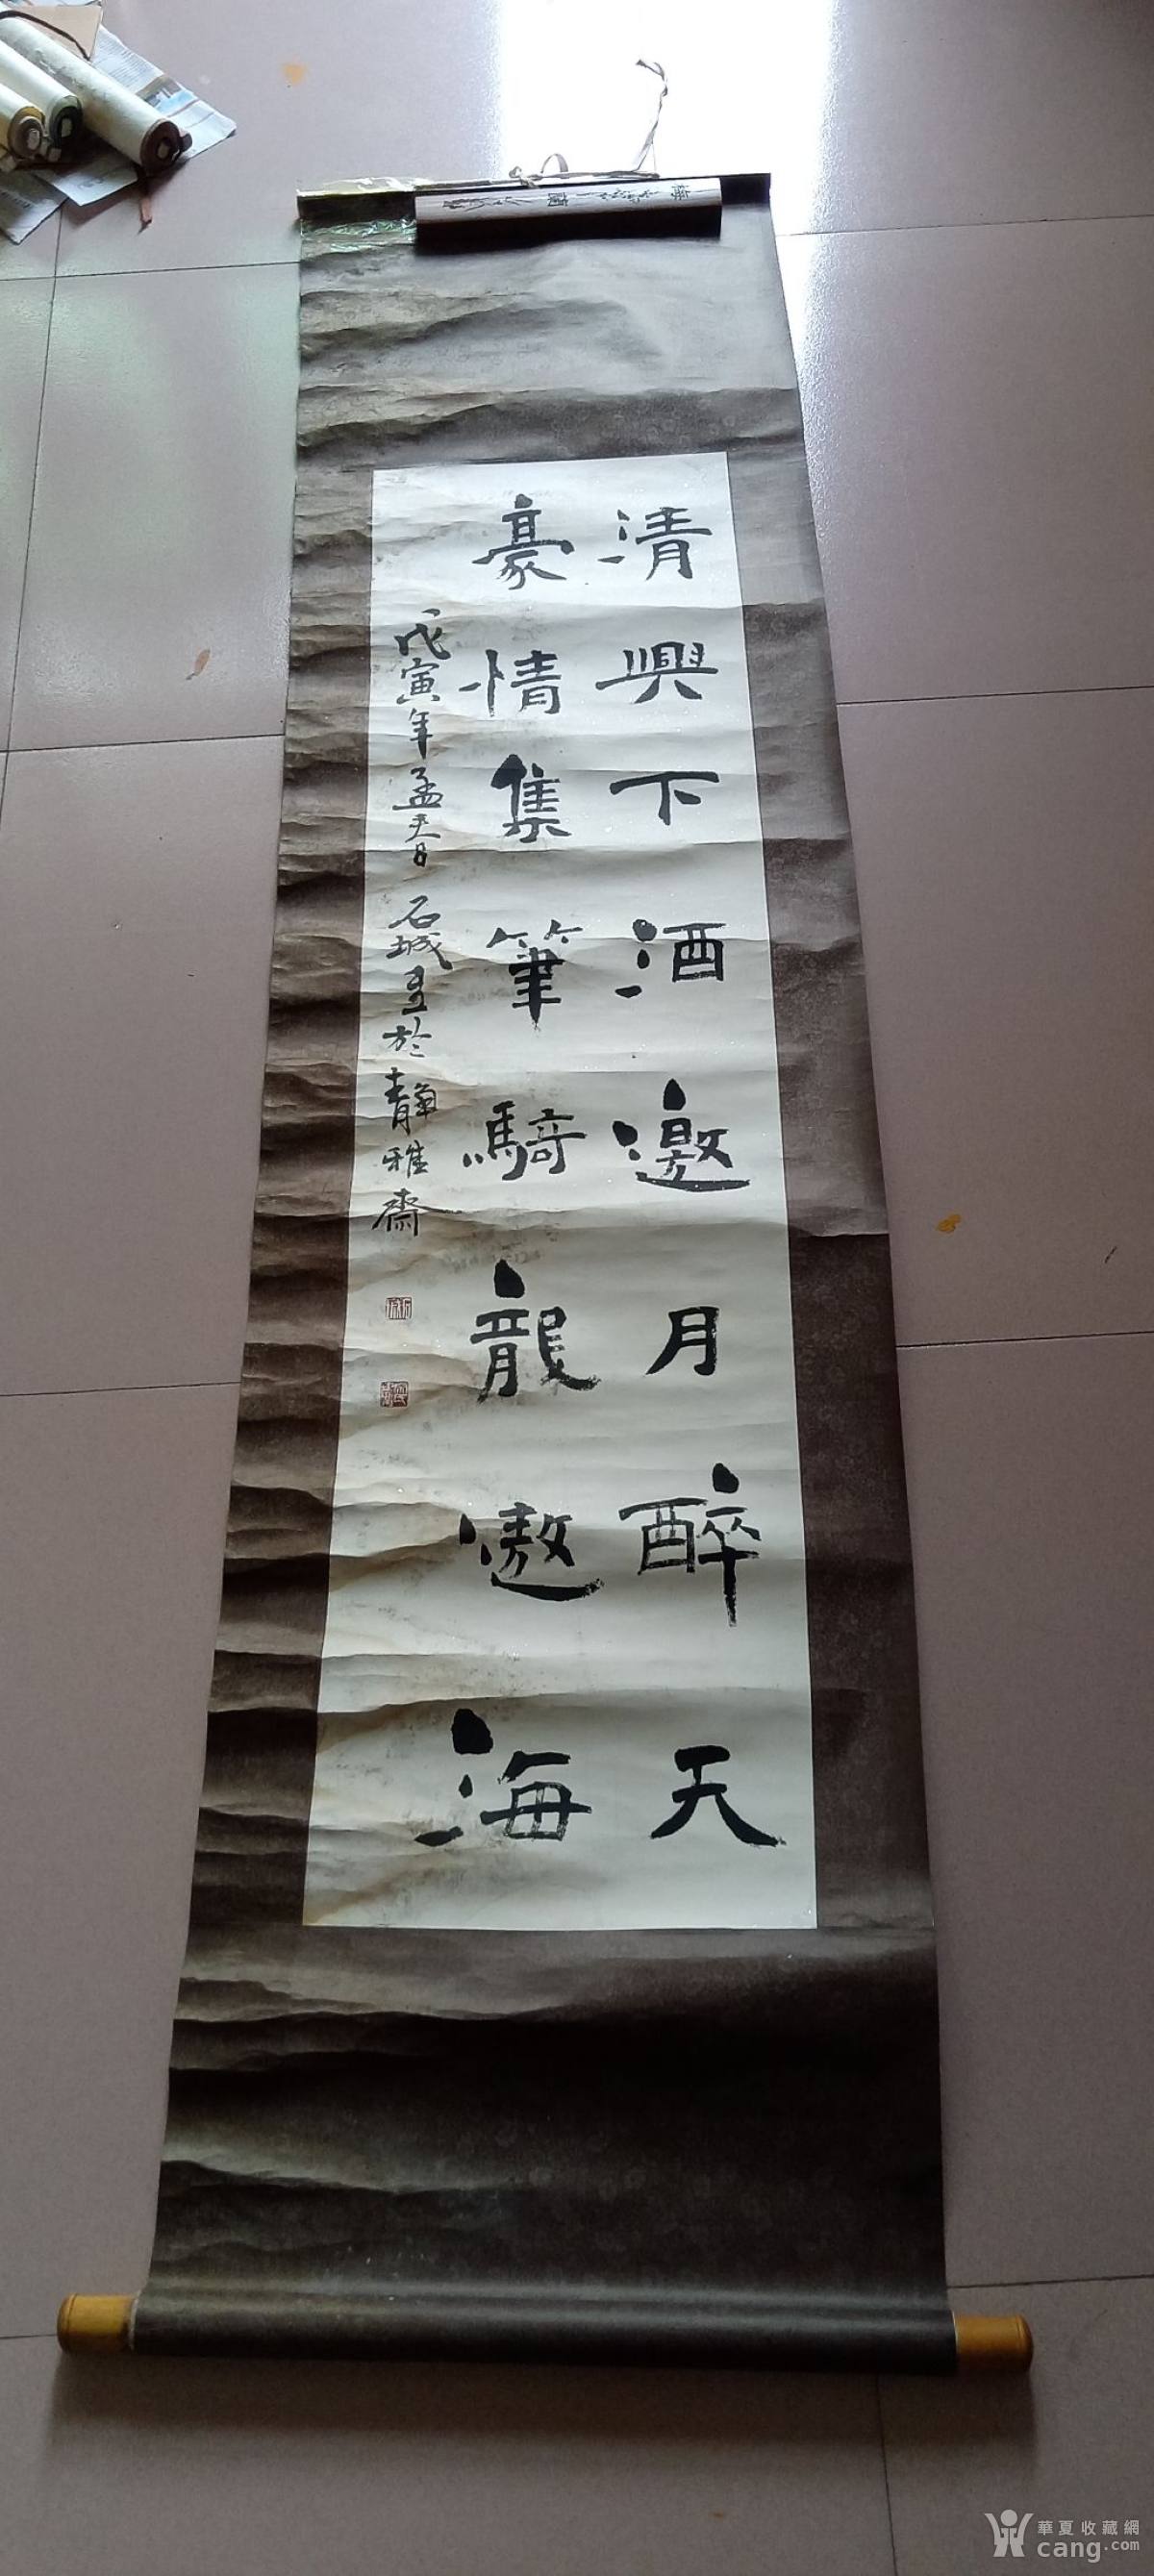 清興下酒邀月醉天
豪情集筆騎龍遨海
戊寅年孟春月石城書於靜雅齋
華夏收藏網
cang.com